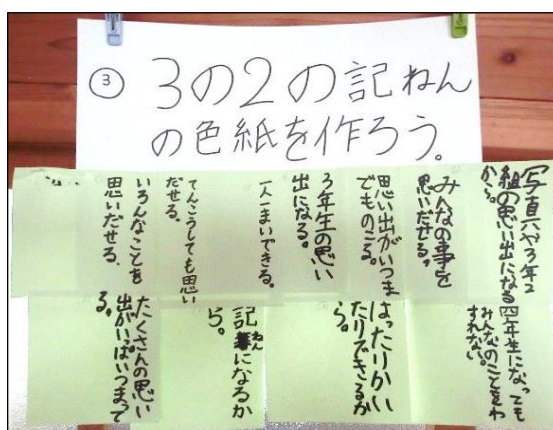 ③ 3の2の記ねん
の色紙を作ろう。
写真だや3年2
組の思い出になる
から。
みんなの事を
思いだせる。
思い出がいつま
でものこる。
3年生の思い
出になる。
一人一まいできる。
てんこうしても思い
だせる。
いろんなことを
思いだせる。
四年生になっても
みんなのことをわ
すれない。
はったりかい
たりできるか
ら。
記ねんになるか
ら。
たくさんの思い
出がいっぱいつまって
る。